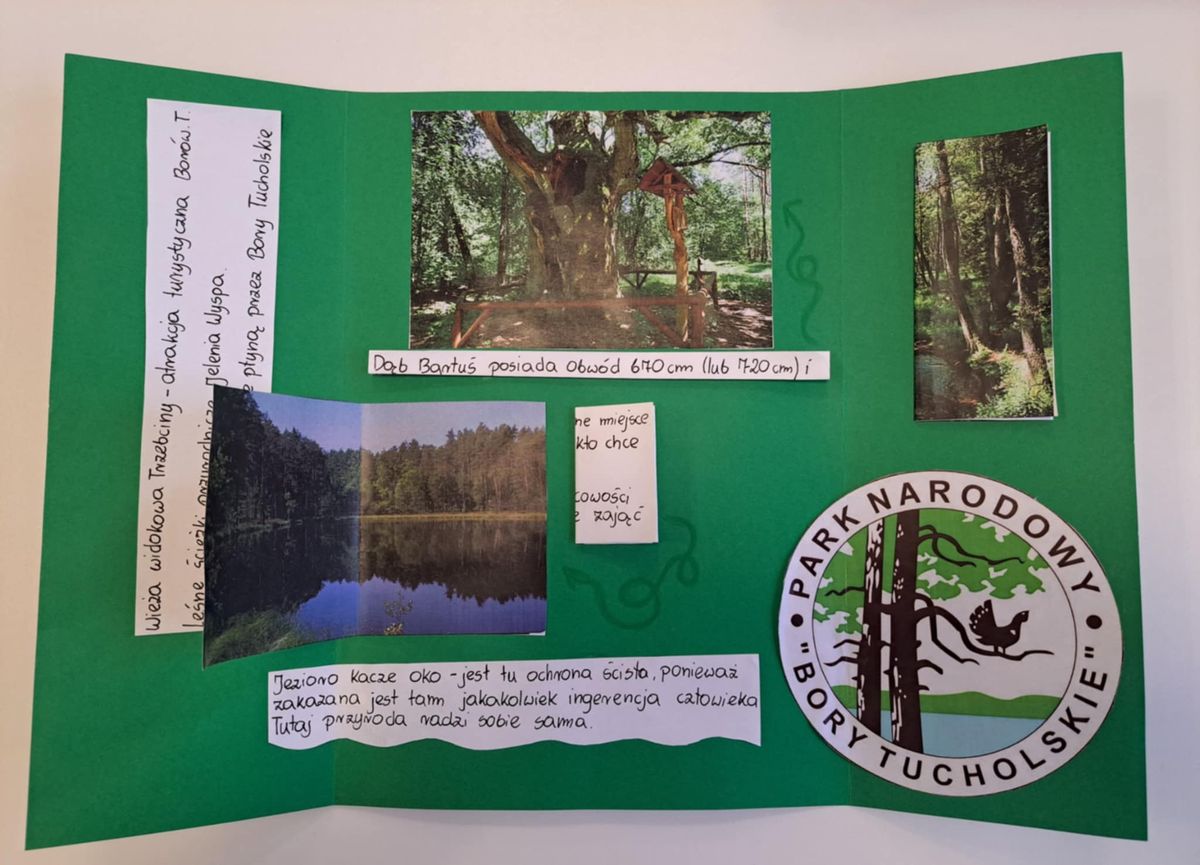 Wieża widokowa Trzebciny - atrakcja turystyczna Borów.T.
leśne ścieżki przyrodnicze Jelenia Wyspa.
płyną przez Bory Tucholskie
Dąb Bartuś posiada obwód 670cm (lub 720cm) i
ne miejsce
kto chce
cowości
zająć
Jezioro kacze oko - jest tu ochrona ścisła, ponieważ
zakazana jest tam jakakolwiek ingerencja człowieka
Tutaj przyroda radzi sobie sama.
PARK NARODOWY
"BORY TUCHOLSKIE"